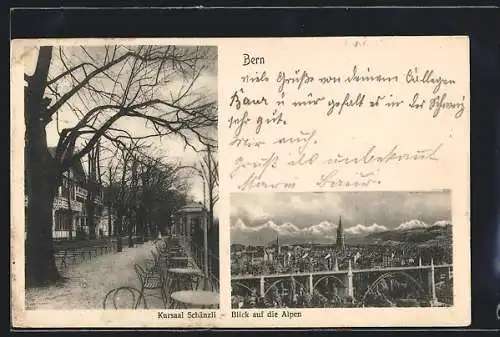 Bern
viele Grüße von deinem Collegen
Baur u nur gefalt es in der Schweiz
sehr gut.
Mir auch.
Gruß als unbekannt
Marie Baur.
Kursaal Schänzli – Blick auf die Alpen